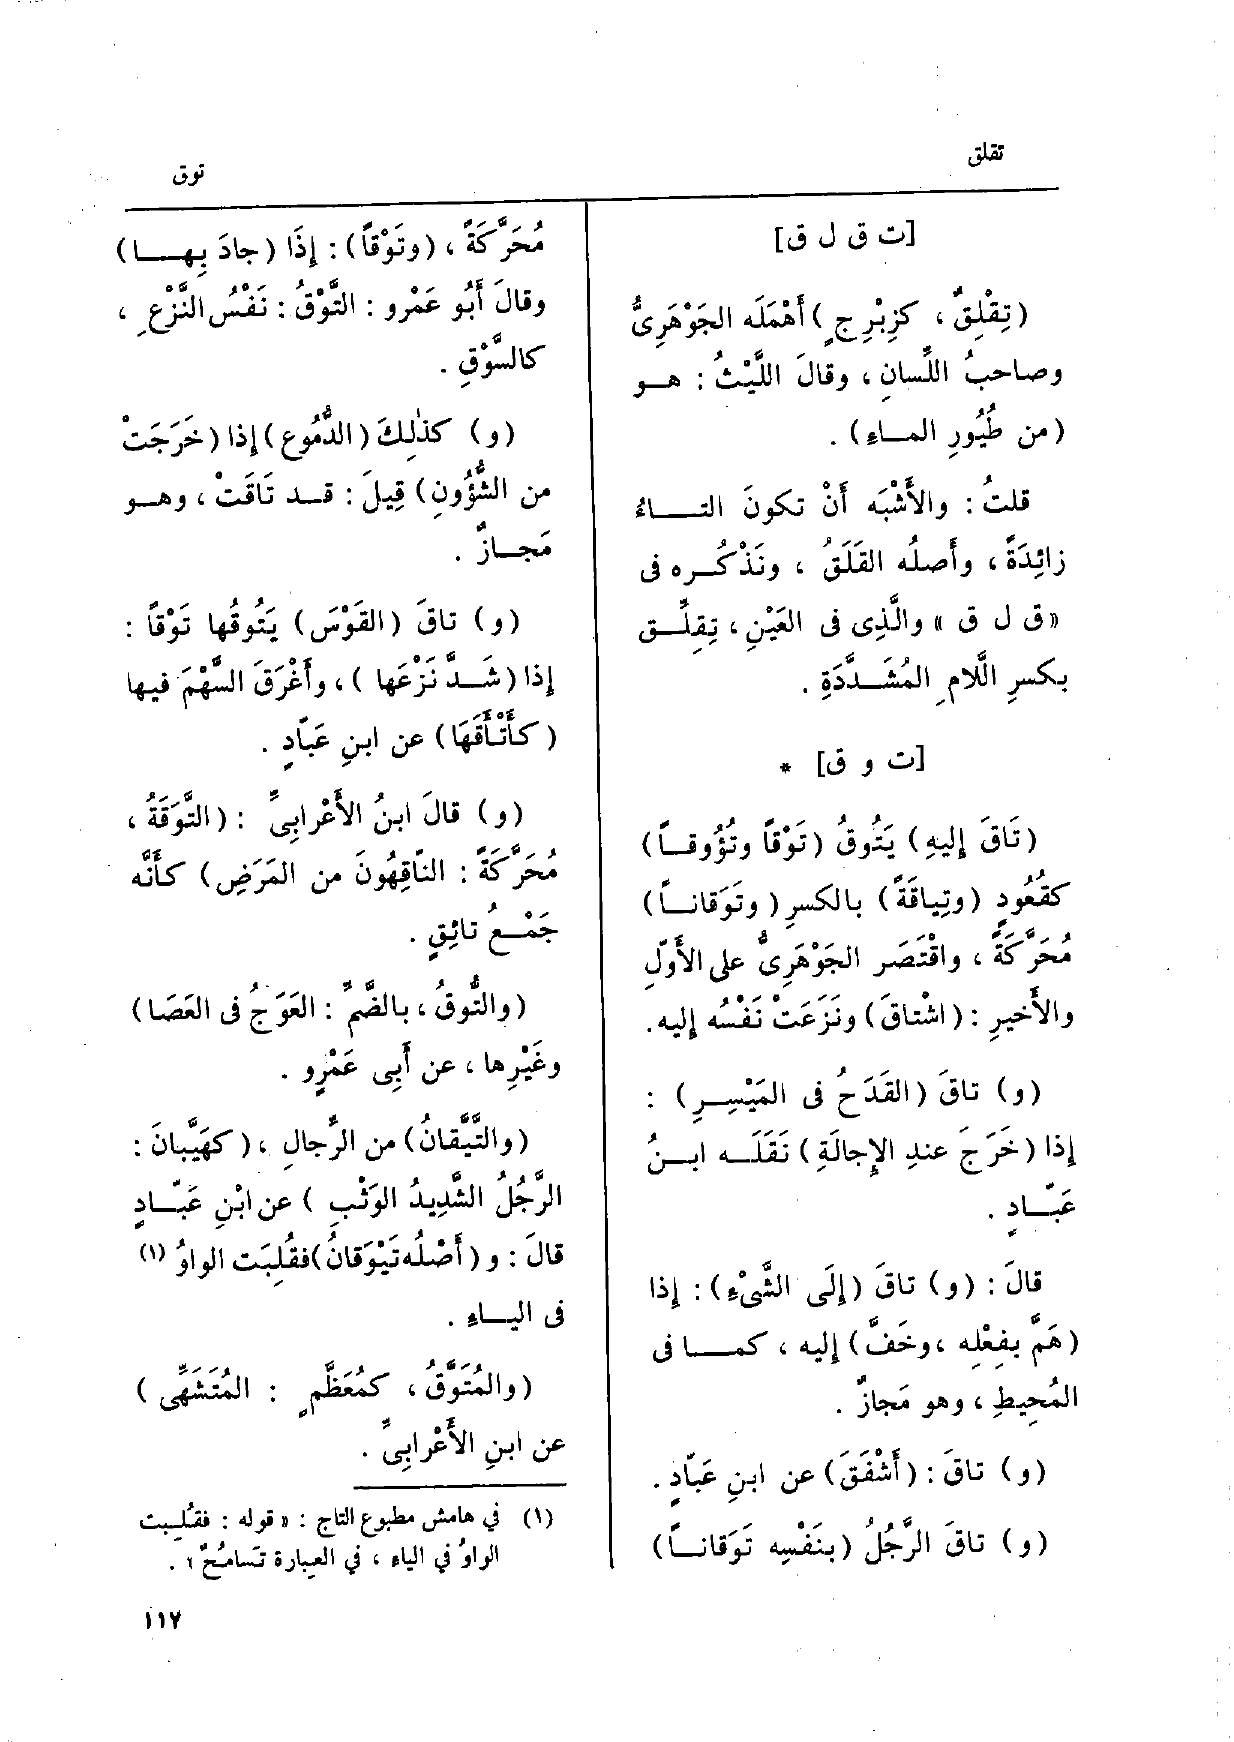 تقلق
توق
[ت ق ل ق]
(تِقْلِقٌ ، كزِبْرِجٍ) أَهْمَلَه الجَوْهَرِىُّ
وصاحبُ اللِّسان ، وقالَ اللَّيْثُ : هـو
(من طُيُورِ المـاء) .
قلتُ : والأَشْبَه أَنْ تكونَ التـاءُ
زائِدَةً ، وأَصلُه القَلَقُ ، ونَذْكُـره فى
« ق ل ق » والَّذِى فى العَيْنِ ، تِقِلِّـق
بكسرِ الَّلامِ المُشَـدَّدَةِ .
[ت و ق] *
(تَاقَ إِليهِ) يَتُوقُ (تَوْقاً وتُؤُوقـاً)
كقُعُودٍ (وتِياقَةً) بالكسرِ (وتَوَقانـاً)
مُحَرَّكَةً ، واقْتَصَر الجَوْهَرِىُّ على الأَوّلِ
والأَخيرِ : (اشْتاقَ) ونَزَعَتْ نَفْسُه إليه.
(و) تاقَ (القَدَحُ فى المَيْسِـرِ) :
إذا (خَرَجَ عندِ الإِجالَةِ) نَقَلَـه ابـنُ
عَبّـادٍ .
قالَ : (و) تاقَ (إِلَى الشَّىْءِ) : إذا
(هَمَّ بفِعْلِه ، وخَفَّ) إليه ، كمـا فى
المُحِيطِ ، وهو مَجازٌ .
(و) تاقَ : (أَشْفَقَ) عن ابنِ عَبّادٍ .
(و) تاقَ الرَّجُلُ (بنَفْسِه تَوَقانـاً)
مُحَرَّكَةً ، (وتَوْقاً) : إِذَا (جادَ بِهـا)
وقالَ أَبُو عَمْرو : التَّوْقُ : نَفْسُ النَّزْعِ ،
كالسَّوْقِ .
(و) كذٰلِكَ (الدُّمُوع) إذا (خَرَجَتْ
من الشُّؤُونِ) قِيلَ : قـد تَاقَتْ ، وهـو
مَجـازٌ .
(و) تاقَ (القَوْسَ) يَتُوقُها تَوْقاً :
إذا (شَـدَّ نَزْعَها ) ، وأَغْرَقَ السَّهْمَ فيها
(كأَتْأَقَهَا) عن ابنِ عَبّادٍ .
(و) قالَ ابنُ الأَعْرابِىِّ : (التَّوَقَةُ ،
مُحَرَّكَةً : النّاقِهُونَ من المَرَضِ) كأَنَّه
جَمْـعُ تائِقٍ .
(والتُّوقُ ، بالضَّمِّ : العَوَجُ فى العَصَا)
وغَيْرِها ، عن أَبِى عَمْرٍو .
(والتَّيَّقانُ) من الرِّجالِ ، (كهَيَّبانَ :
الرَّجُلُ الشَّدِيدُ الوَثْبِ ) عن ابْنِ عَبّـادٍ
قالَ : و (أَصْلُه تَيْوَقانُ) فقُلِبَت الواوُ (١)
فى اليـاء .
(والمُتَوَّقُ ، كمُعَظَّمٍ : المُتَشَهَّى )
عن ابنِ الأَعْرابِىِّ .
(١) في هامش مطبوع التاج : « قوله : فقُلِبت
الواوُ في الياء ، في العبارة تَسامُحٌ » .
١١٧